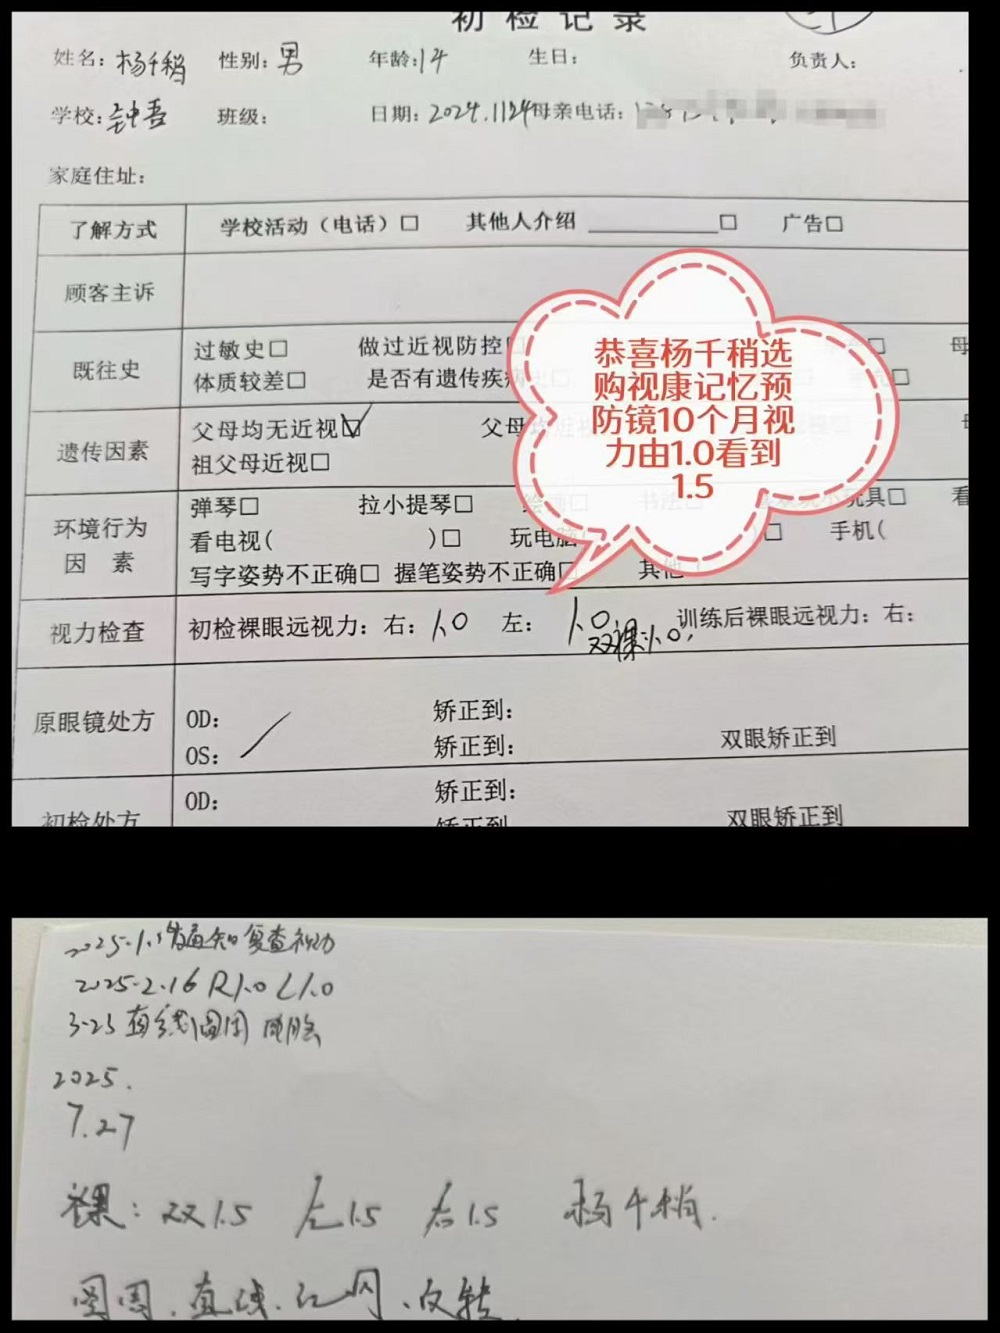 初检记录
姓名：杨千稍 性别：男 年龄：14 生日： 负责人：
学校：钟吾 班级： 日期：2024.1124 母亲电话：
家庭住址：
了解方式 学校活动（电话）□ 其他人介绍 ______□ 广告□
顾客主诉
既往史 过敏史□ 做过近视防控□ 母
体质较差□ 是否有遗传疾病史□ □
遗传因素 父母均无近视☑ 父母
祖父母近视□
环境行为因素 弹琴□ 拉小提琴□ 绘画□ 书法□ 玩具□ 看
看电视( )□ 玩电脑( □ 手机(
写字姿势不正确□ 握笔姿势不正确□ 其他（
视力检查 初检裸眼远视力：右：1.0 左：1.0. 训练后裸眼远视力：右：
双裸：1.0.
原眼镜处方 OD： 矫正到：
OS： 矫正到： 双眼矫正到
初检处方 OD： 矫正到：
矫正到 双眼矫正到
恭喜杨千稍选
购视康记忆预
防镜10个月视
力由1.0看到
1.5
通知复查视力
2025.2.16 R1.0 L1.0
3.23 直线 圆周
2025.
7.27
裸：双1.5 左1.5 右1.5 杨千稍.
圆周、直线、红网、反转